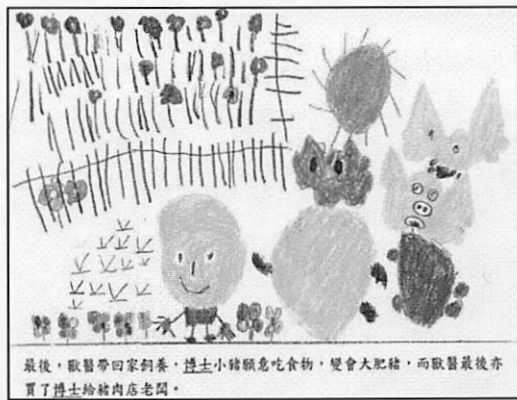 最後，獸醫帶回家飼養，博士小豬願意吃食物，變會大肥豬，而獸醫最後亦
買了博士給豬肉店老闆。